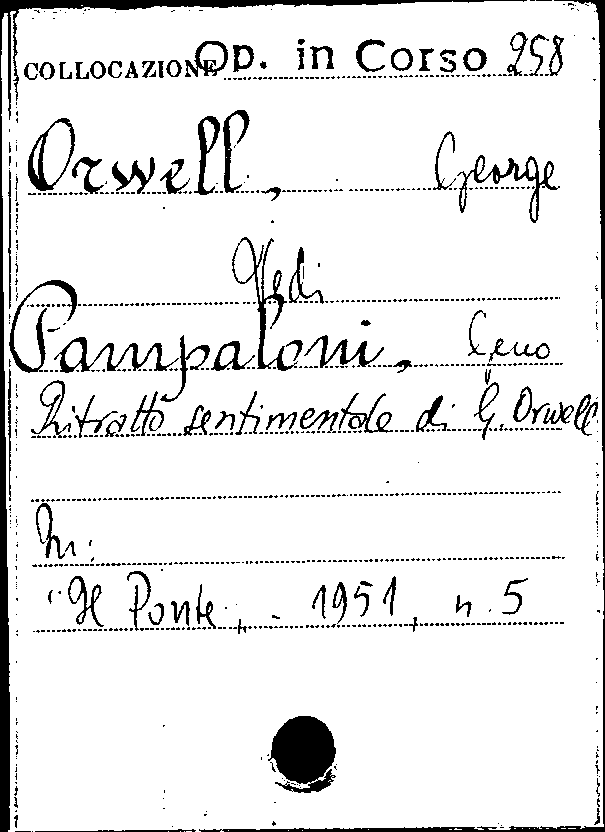 COLLOCAZIONE Op. in Corso 258
Orwell, George
Vedi
Pampaloni, Geno
Ritratto sentimentale di G. Orwell
In:
"Il Ponte", - 1951, n. 5